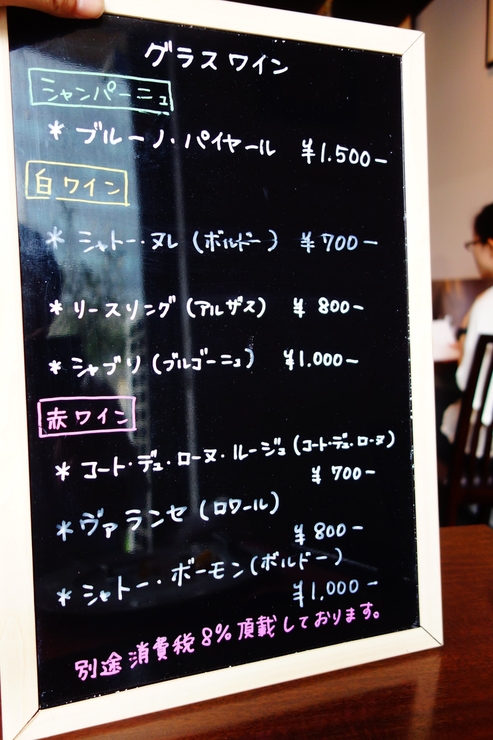 グラスワイン
シャンパーニュ
* ブルーノ・パイヤール ¥1.500-
白ワイン
* シャトー・ヌレ (ボルドー) ¥700-
* リースリング (アルザス) ¥800-
* シャブリ (ブルゴーニュ) ¥1.000-
赤ワイン
* コート・デュ・ローヌ・ルージュ (コート・デュ・ローヌ)
¥700-
* ヴァランセ (ロワール)
¥800-
* シャトー・ボーモン (ボルドー)
¥1,000-
別途消費税8%頂載しております。